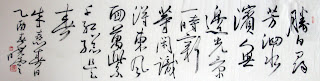 勝日尋
芳泗水
濱無
邊光景
一時新
等閒識
得東風
面萬紫
千紅總是
春
朱熹春日